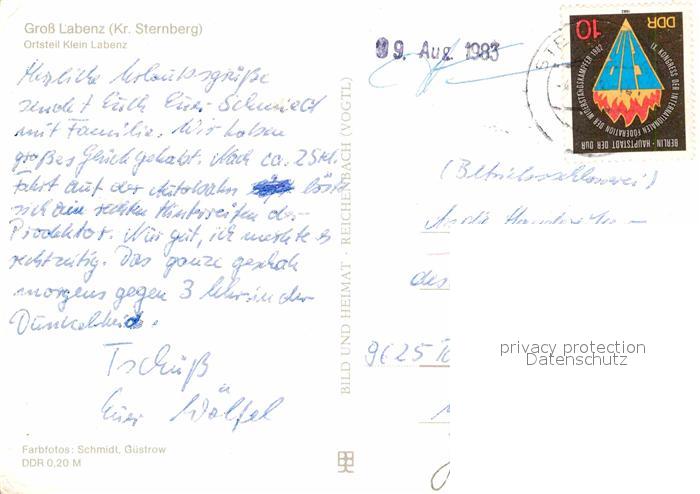 Groß Labenz (Kr. Sternberg)
Ortsteil Klein Labenz
Herzliche Urlaubsgrüße
sendet Euch Euer Schmied
mit Familie. Wir haben
großes Glück gehabt. Nach ca. 2 Std.
Fahrt auf der Autobahn löste
sich am rechten Hinterreifen der
Protektor. Nur gut, ich merkte es
rechtzeitig. Das ganze geschah
morgens gegen 3 Uhr in der
Dunkelheit.
Tschüß
Euer Wölfel
Farbfotos: Schmidt, Güstrow
DDR 0,20 M
BILD UND HEIMAT · REICHENBACH (VOGTL)
09. Aug. 1983
DDR 10
IX. KONGRESS DER INTERNATIONALEN FÖDERATION DER WIDERSTANDSKÄMPFER 1982
BERLIN · HAUPTSTADT DER DDR
STE
(Betriebsschlosserei)
An die
des
9625
privacy protection
Datenschutz